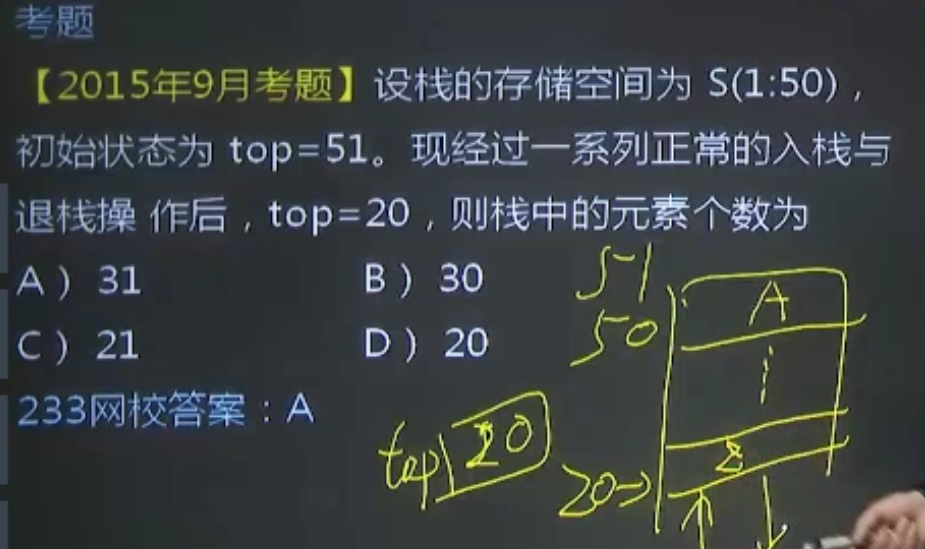 考题
【2015年9月考题】设栈的存储空间为 S(1:50)，
初始状态为 top=51。现经过一系列正常的入栈与
退栈操 作后，top=20，则栈中的元素个数为
A）31 B）30
C）21 D）20
233网校答案：A
51
A
50
top 20
20→